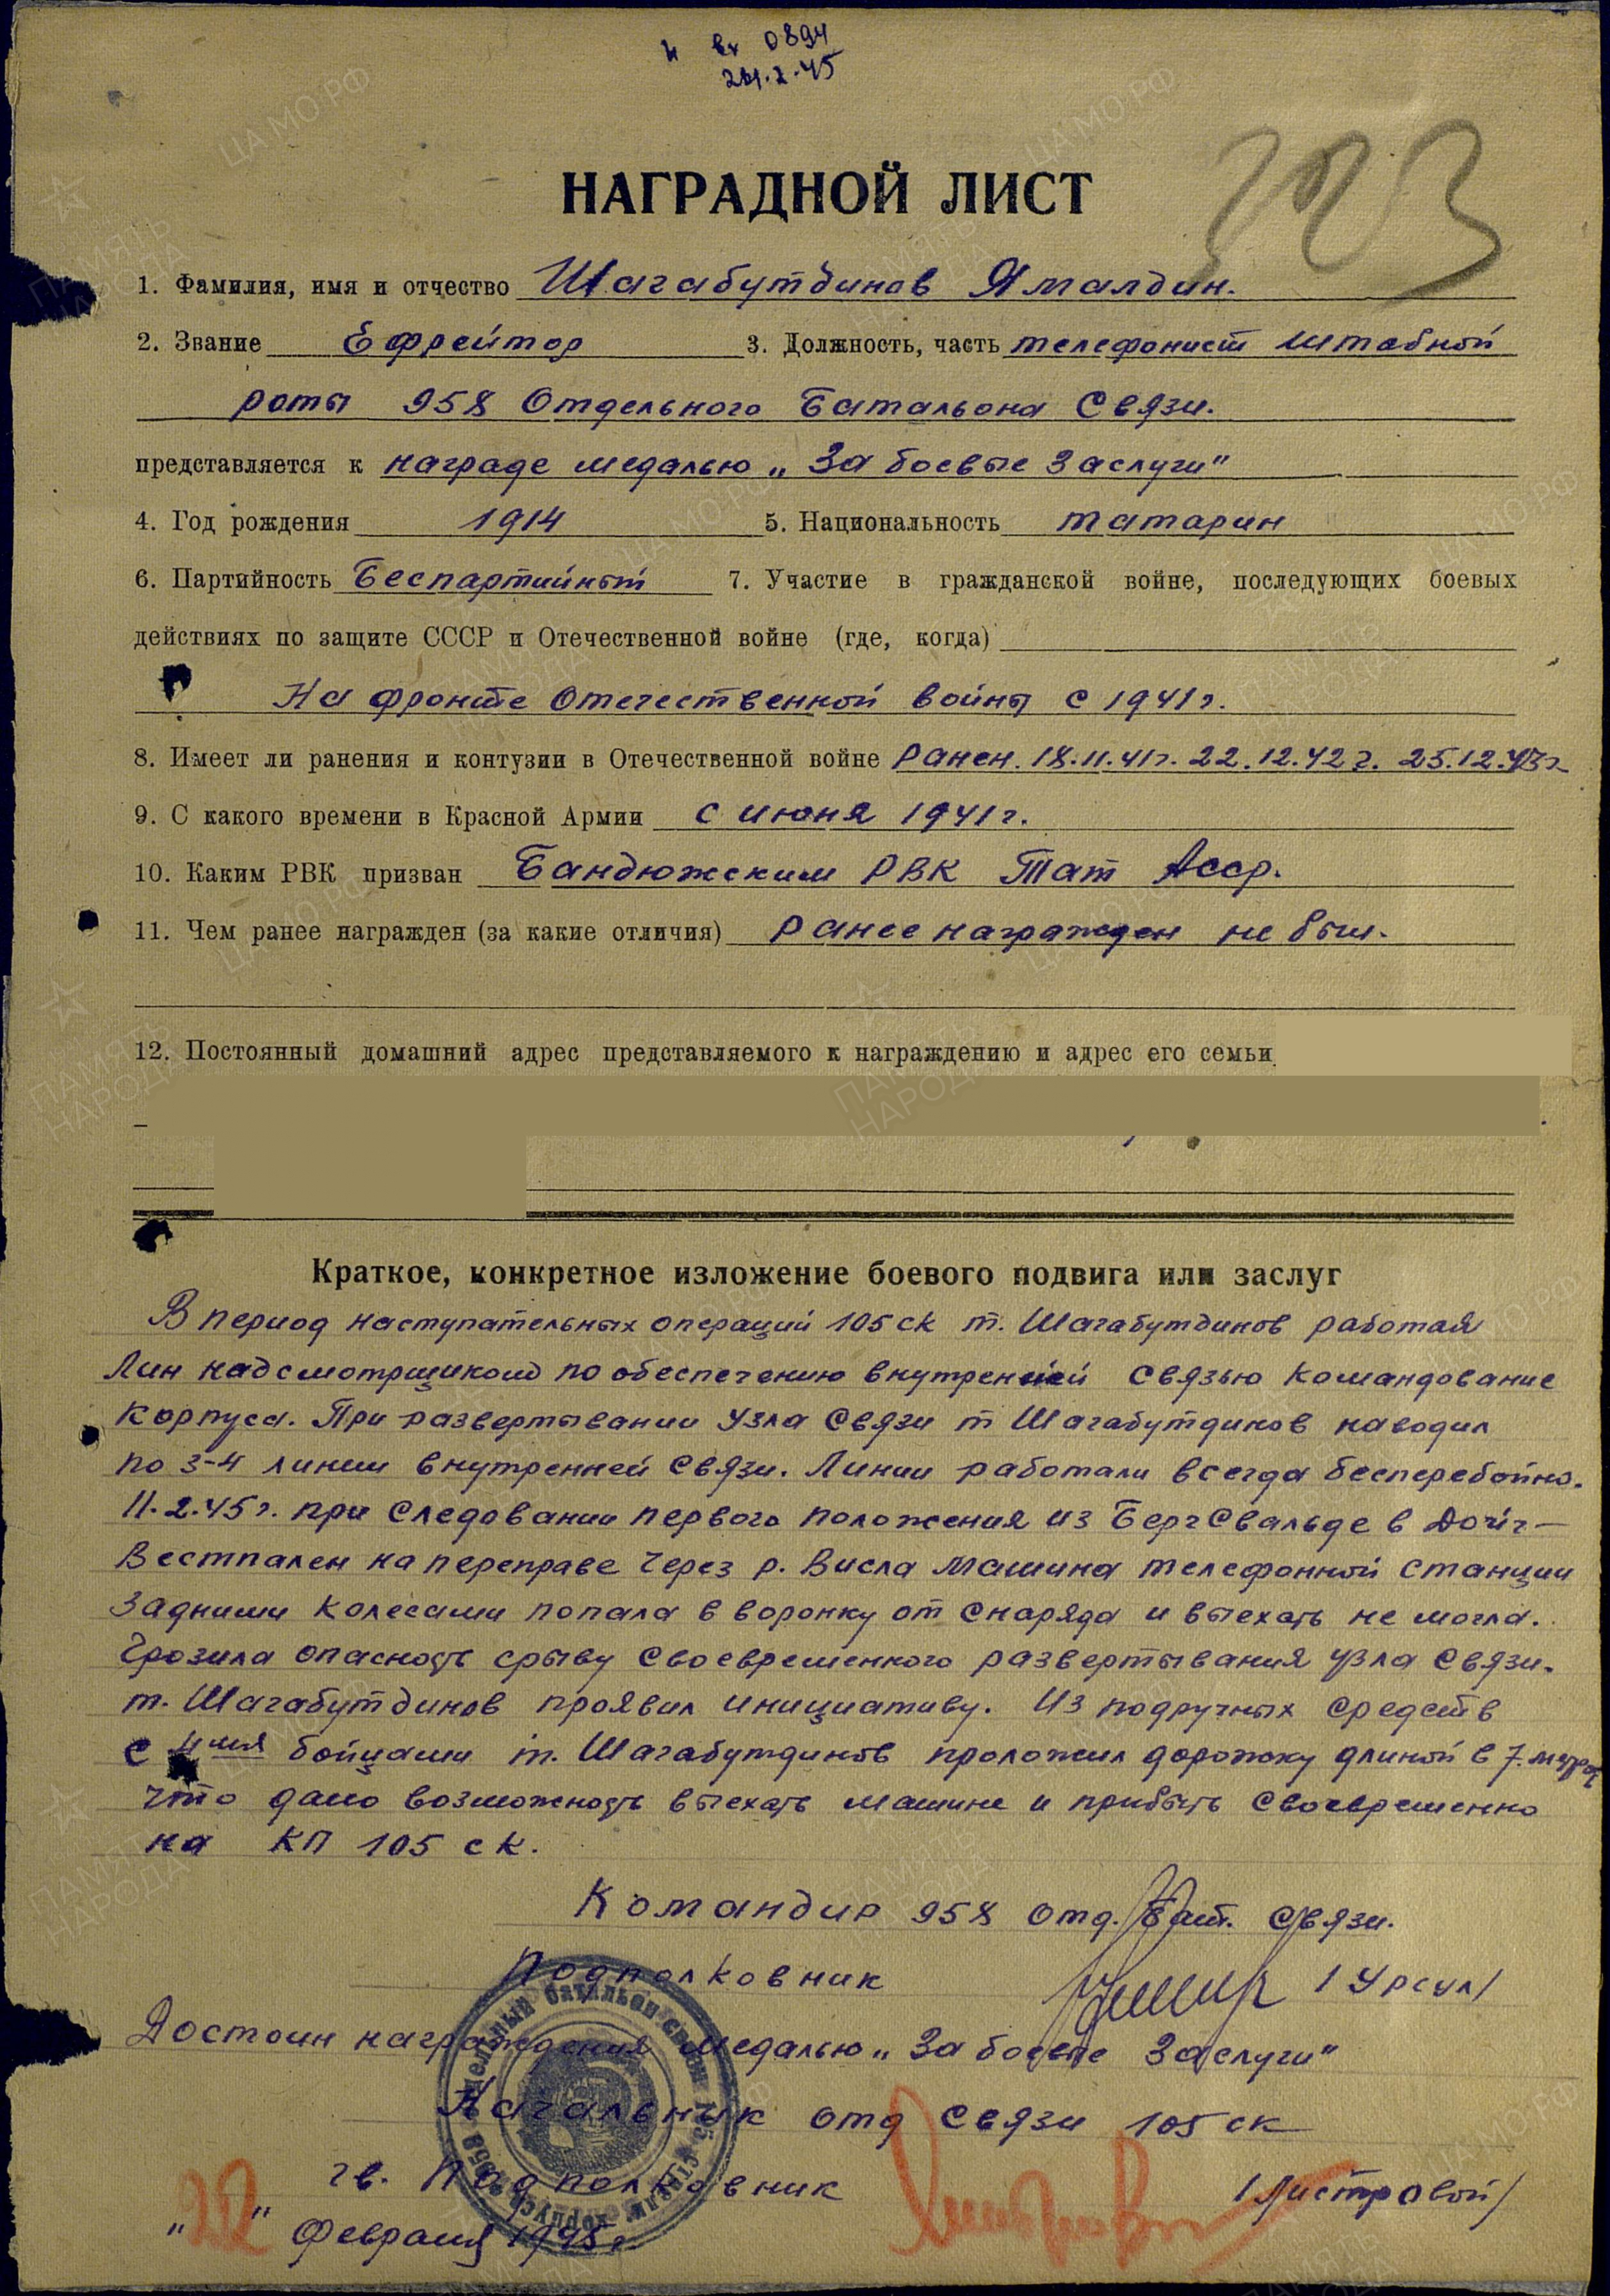 вх 0894
24.2.45
НАГРАДНОЙ ЛИСТ
1. Фамилия, имя и отчество Шагабутдинов Ямалдин.
2. Звание Ефрейтор 3. Должность, часть телефонист штабной
роты 958 Отдельного Батальона Связи.
представляется к награде медалью „За боевые Заслуги"
4. Год рождения 1914 5. Национальность татарин
6. Партийность Беспартийный 7. Участие в гражданской войне, последующих боевых
действиях по защите СССР и Отечественной войне (где, когда)
На фронте Отечественной войны с 1941 г.
8. Имеет ли ранения и контузии в Отечественной войне Ранен. 18.11.41г. 22.12.42 г. 25.12.43г
9. С какого времени в Красной Армии с июня 1941 г.
10. Каким РВК призван Бандюжским РВК Тат Асср.
11. Чем ранее награжден (за какие отличия) Ранее награжден не был.
12. Постоянный домашний адрес представляемого к награждению и адрес его семьи
Краткое, конкретное изложение боевого подвига или заслуг
В период наступательных операций 105 ск т. Шагабутдинов работая
Лин надсмотрщиком по обеспечению внутренней связью командование
корпуса. При развертывании узла связи т Шагабутдинов наводил
по 3-4 линии внутренней связи. Линии работали всегда бесперебойно.
11.2.45 г. при следовании первого положения из Бергсвальде в Дойч-
Вестпален на переправе через р. Висла машина телефонной станции
задними колесами попала в воронку от снаряда и выехать не могла.
Грозила опасность срыву своевременного развертывания узла связи.
т. Шагабутдинов проявил инициативу. Из подручных средств
с 4мя бойцами т. Шагабутдинов проложил дорожку длиной в 7 метров
что дало возможность выехать машине и прибыть своевременно
на КП 105 ск.
Командир 958 отд. Бат. связи.
Подполковник /Урсул/
Достоин награждения медалью „За боевые Заслуги"
Начальник отд связи 105 ск
гв. Подполковник /Листровой/
„22" Февраля 1945 г.